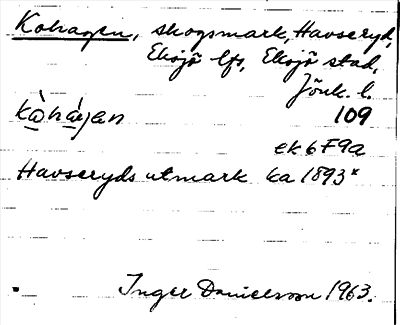 Kohagen, skogsmark, Havseryd,
Eksjö lfs, Eksjö stad,
Jönk. l.
kò̱há̱gan 109
ek 6F9a
Havseryds utmark ka 1893*
Inger Danielsson 1963.